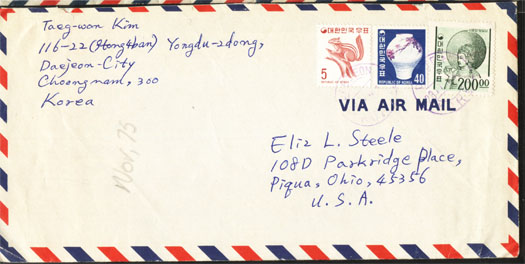 Taeg-won Kim
116-22 (4tong 4ban) Yongdu-2dong,
Daejeon-City
Choongnam, 300
Korea
대한민국우표
5
대한민국우표
REPUBLIC OF KOREA
40
대한민국우표
200.00
VIA AIR MAIL
Nov, 75
Eliz L. Steele
108D Parkridge Place,
Piqua, Ohio, 45356
U. S. A.